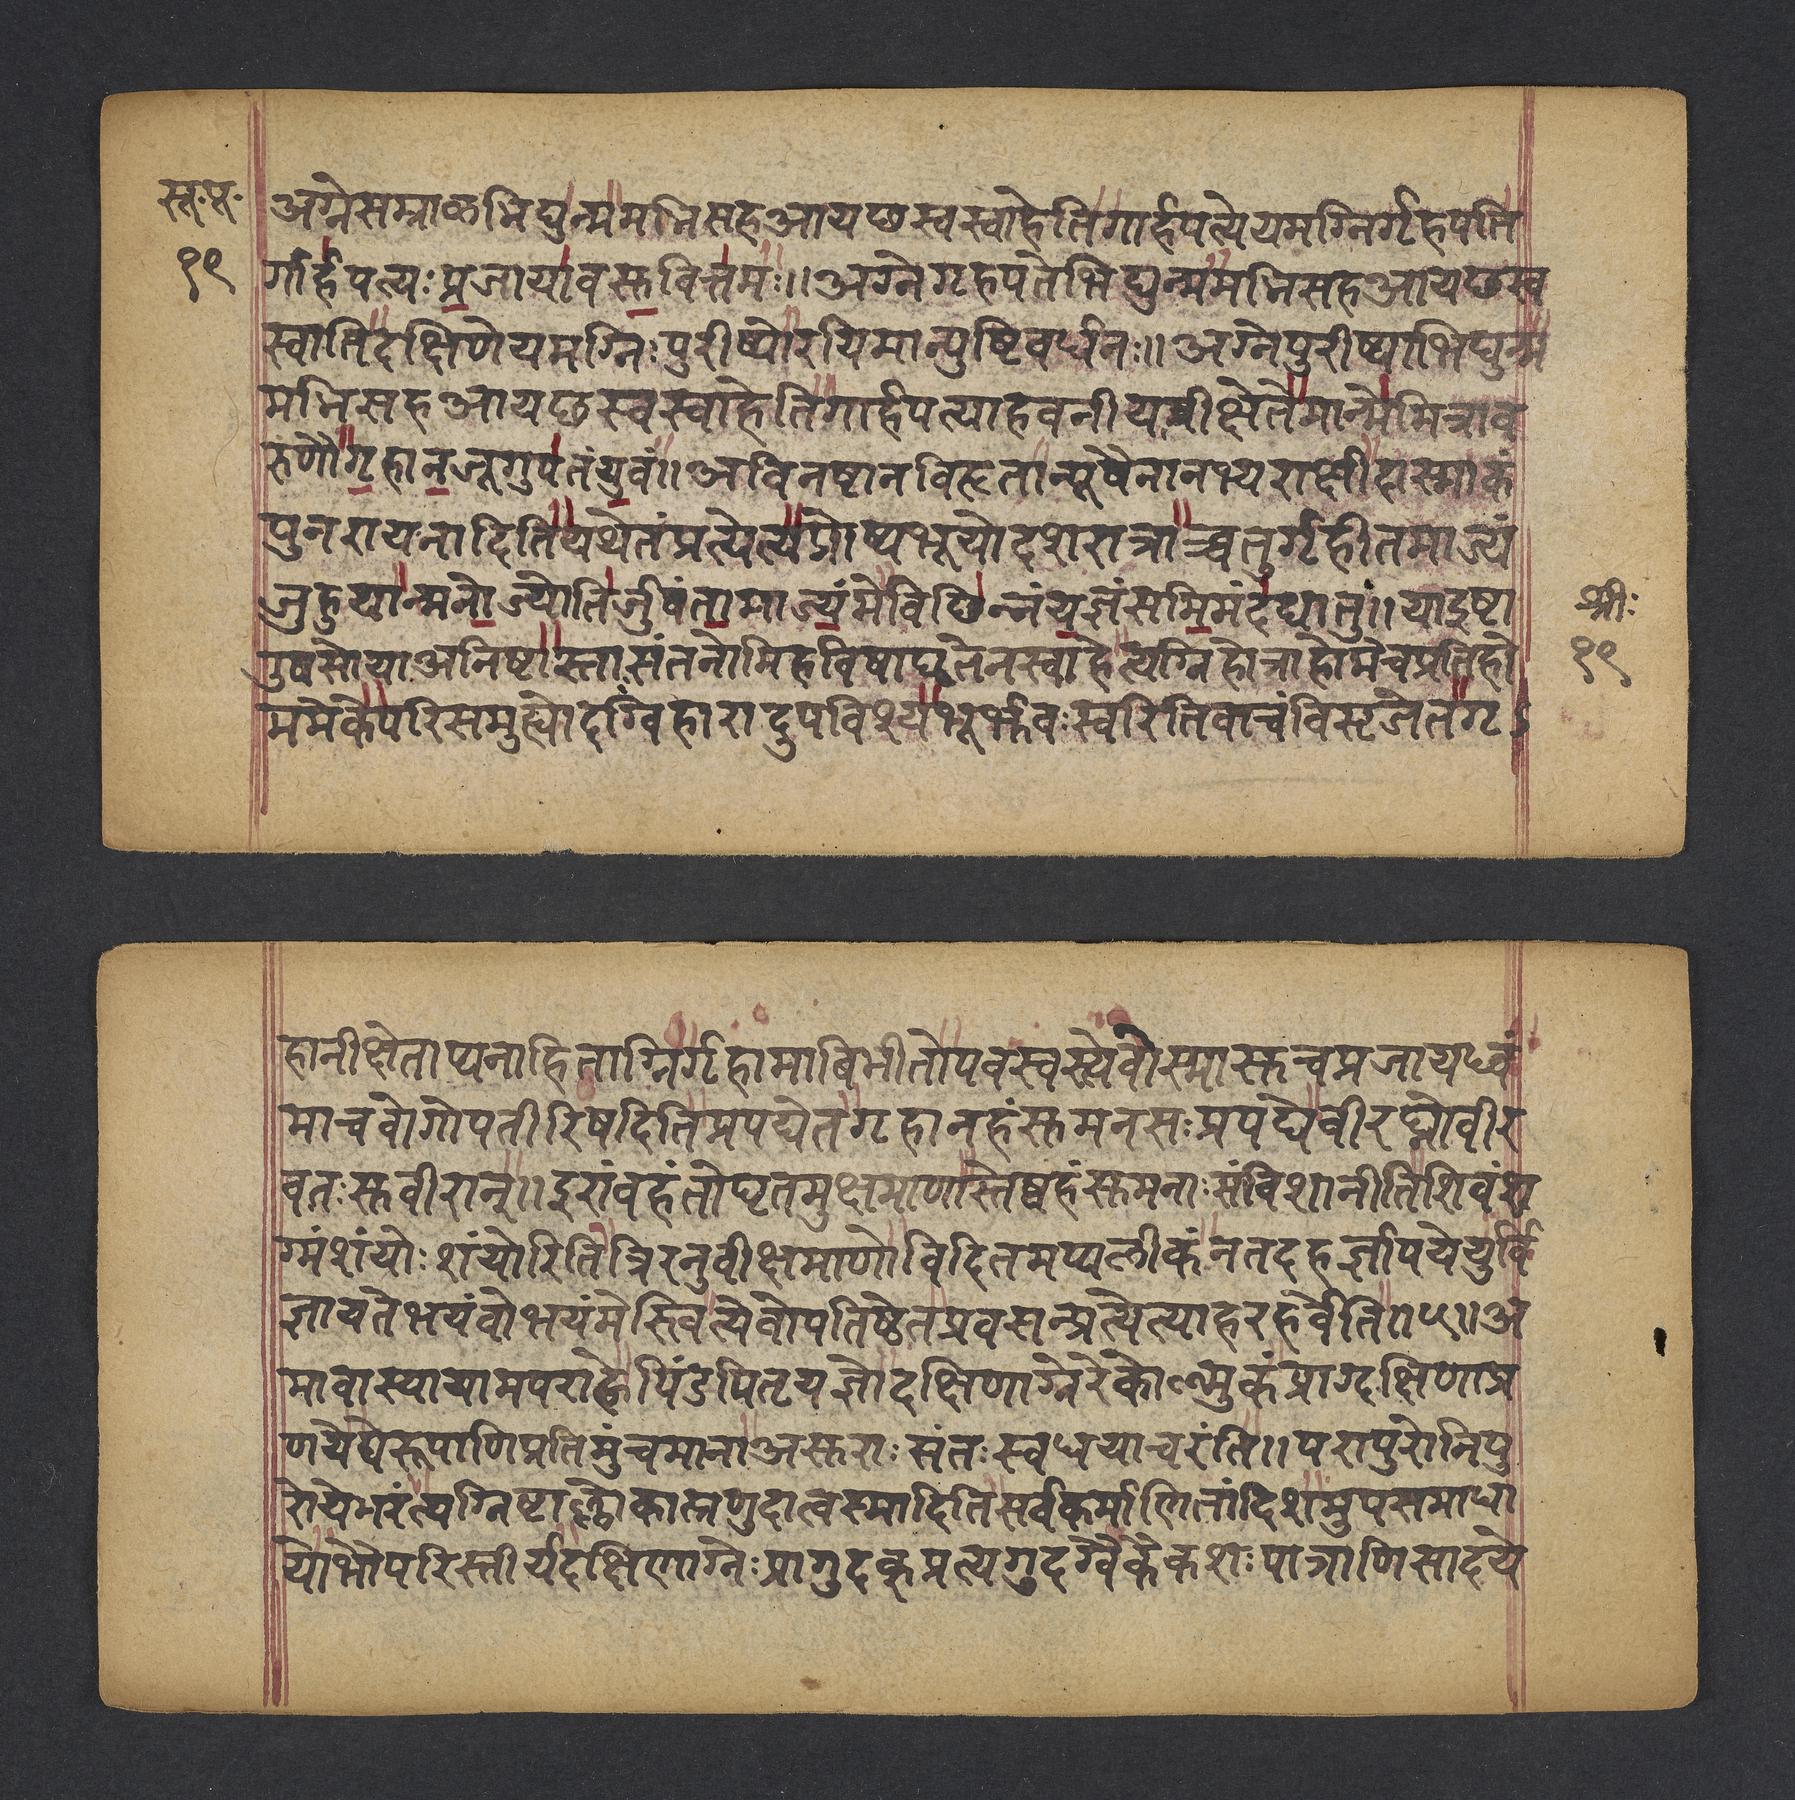 सू॰पू॰
१९
अग्नेसम्राळभिद्युन्ममभिसहआयछस्वस्वाहेतिगार्हपत्येयमग्निर्गृहपति
र्गार्हपत्यःप्रजायावसुवित्तमः॥अग्नेगृहपतेभिद्युन्ममभिसहआयछस्व
स्वातिदक्षिणेयमग्निःपुरीष्योरयिमान्पुष्टिवर्धनः॥अग्नेपुरीष्याभिद्युन्म
मभिसहआयछस्वस्वाहेतिगार्हपत्याहवनीयमीक्षेतेमान्मेमित्राव
रुणौगृहानजूगुपतंयुवं॥अविनष्टानविहृतान्पूषैनानभ्यराक्षीदास्माकं
पुनरायनादितियथेतंप्रत्येत्यप्रोष्यभूयोदशरात्राच्चतुर्गृहीतमाज्यं
जुहुयान्मनोज्योतिर्जुषंतामाज्यंमेविछिन्नंयज्ञंसमिमंदधातु॥याइष्टा
उषसोयाअनिष्टास्तासंतनोमिहविषाघृतेनस्वाहेत्यग्निहोत्राहोमेचप्रतिहो
ममेकेपरिसमुह्योदग्विहारादुपविश्यभूर्भुवःस्वरितिवाचंविसृजेतगृ
श्रीः
१९
हानीक्षेताप्यनाहिताग्निर्गृहामाबिभीतोपवस्वस्त्येवोस्मासुचप्रजायध्वं
माचवोगोपतीरिषदितिप्रपद्येतगृहानहंसुमनसःप्रपद्येवीरघ्नोवीर
वतःसुवीरान्॥इरांवहंतोघृतमुक्षमाणास्तेष्वहंसुमनाःसंविशानीतिशिवंश
ग्मंशंयोःशंयोरितित्रिरनुवीक्षमाणोविदितमप्यलीकंनतदहर्ज्ञापयेयुर्वि
ज्ञायतेभयंवोभयंमेस्त्वित्येवोपतिष्ठेतप्रवसन्प्रत्येत्याहरहर्वेति॥५॥अ
मावास्यायामपराह्णेपिंडपितृयज्ञोदक्षिणाग्नेरेकोल्मुकंप्राग्दक्षिणाप्र
णयेद्येरूपाणिप्रतिमुंचमानाअसुराःसंतःस्वधयाचरंति॥परापुरोनिपु
रोयेभरंत्यग्निष्टाल्लोकात्प्रणुदात्वस्मादितिसर्वकर्माणितांदिशमुपसमाधा
योभौपरिस्तीर्यदक्षिणाग्नेःप्रागुदक्प्रत्यगुदग्वैकैकशःपात्राणिसादये